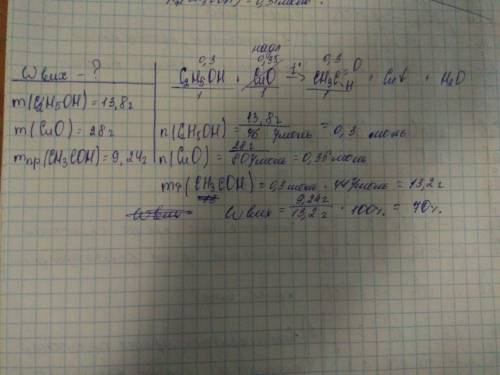 W вих - ?
m(C2H5OH) = 13,8г
m(CuO) = 28г
mпр(CH3COH) = 9,24г
0,3 надл 0,35 0,3
C2H5OH + CuO t° → CH3C O H + Cu↓ + H2O
1 1 1
n(C2H5OH) = 13,8г / 46 г/моль = 0,3 моль
n(CuO) = 28г / 80 г/моль = 0,35 моль
mт(CH3COH) = 0,3 моль · 44 г/моль = 13,2г
W вих = 9,24г / 13,2г · 100% = 70%.